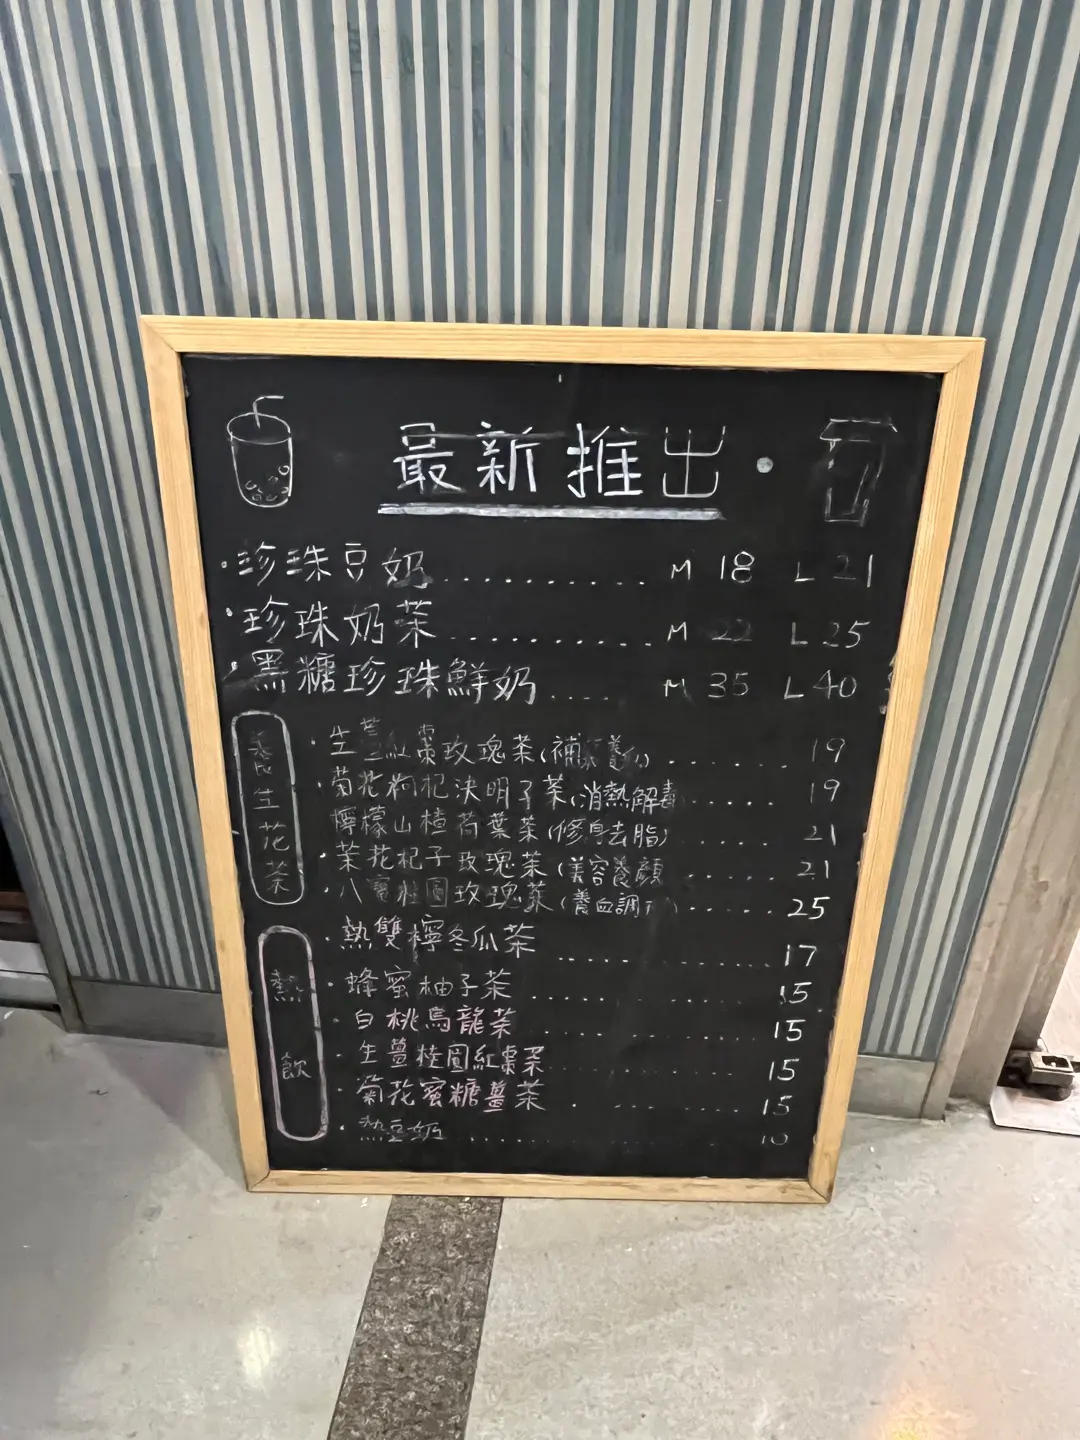 最新推出
·珍珠豆奶.............. M 18 L 21
·珍珠奶茶.............. M 22 L 25
·黑糖珍珠鮮奶.... M 35 L 40
養生花茶
·生薑紅棗玫瑰茶(補氣養血)........ 19
·菊花枸杞決明子茶(消熱解毒...... 19
檸檬山楂荷葉茶(修身去脂)...... 21
·茉花杞子玫瑰茶(美容養顏..... 21
·八寶桂圓玫瑰茶(養血調)...... 25
熱飲
·熱雙檸冬瓜茶.......... 17
·蜂蜜柚子茶.......... 15
·白桃烏龍茶.......... 15
·生薑桂圓紅棗茶.......... 15
·菊花蜜糖薑茶.......... 15
·熱豆奶.......... 10